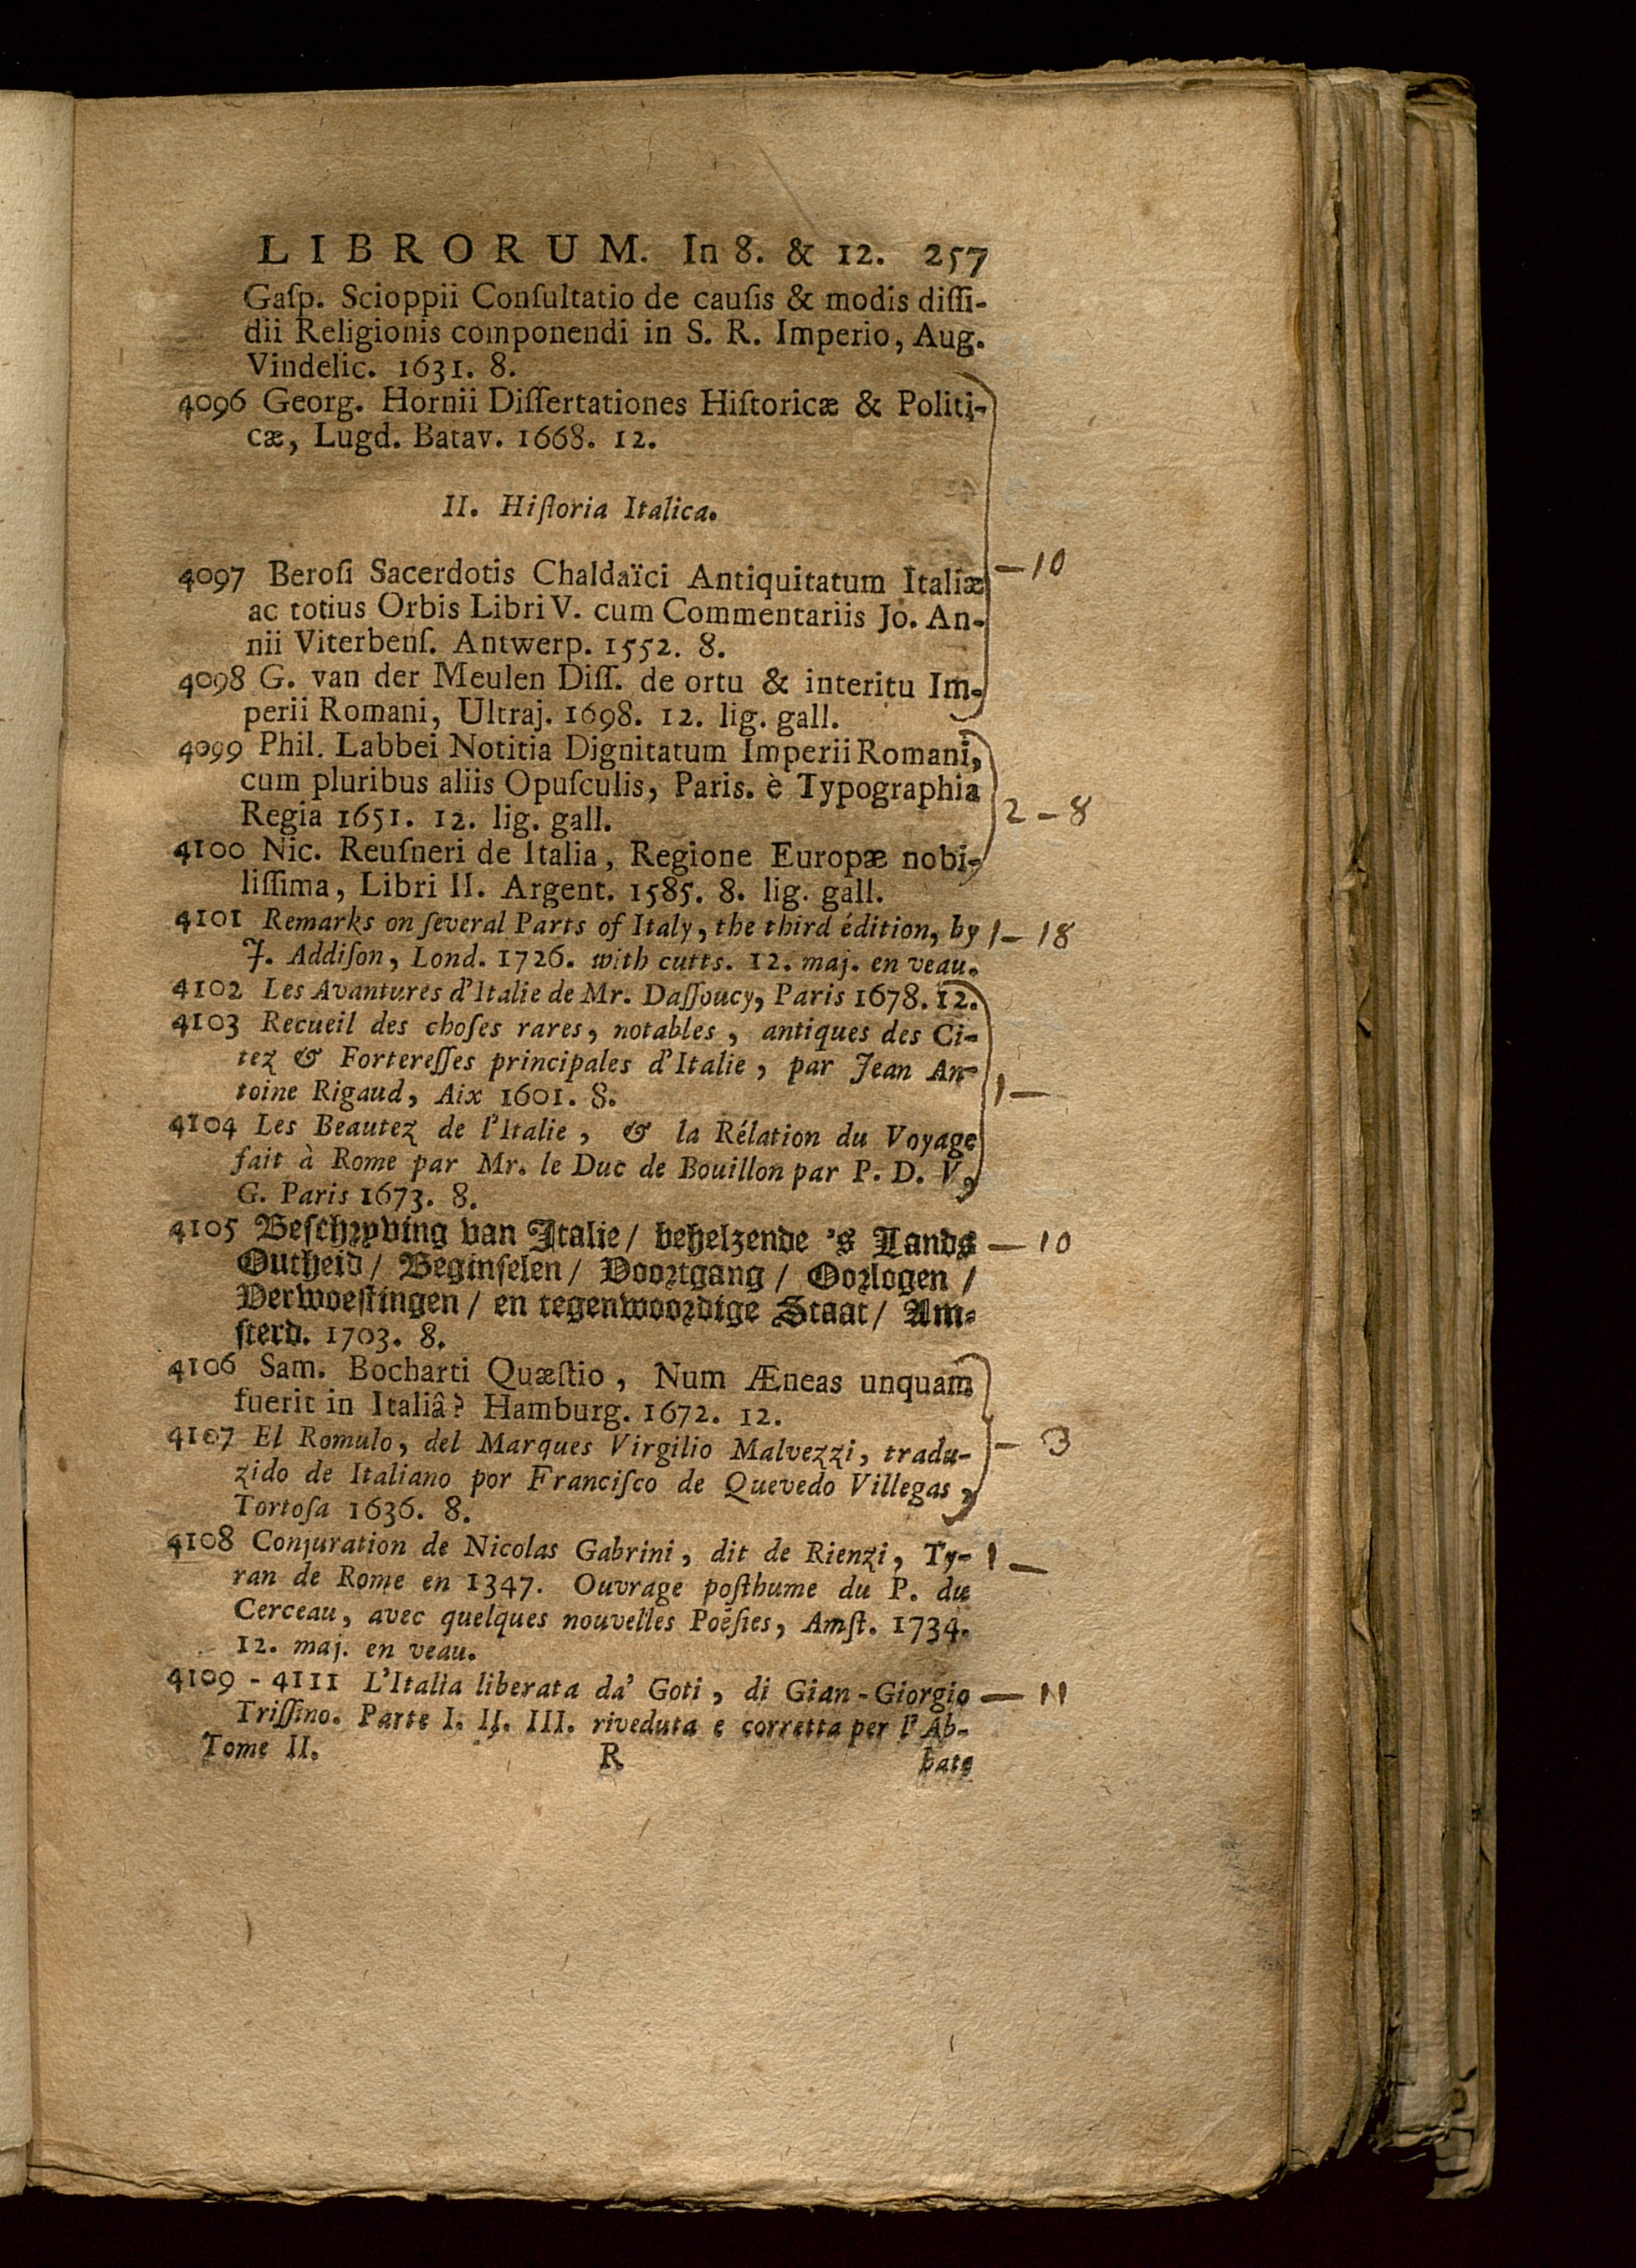 LIBRORUM. In 8. & 12. 257
Gaſp. Scioppii Conſultatio de cauſis & modis diſſi-
dii Religionis componendi in S. R. Imperio, Aug.
Vindelic. 1631. 8.
4096 Georg. Hornii Diſſertationes Hiſtoricæ & Politi-
cæ, Lugd. Batav. 1668. 12.
II. Hiſtoria Italica.
4097 Beroſi Sacerdotis Chaldaïci Antiquitatum Italiæ — 10
ac totius Orbis Libri V. cum Commentariis Jo. An-
nii Viterbenſ. Antwerp. 1552. 8.
4098 G. van der Meulen Diſſ. de ortu & interitu Im-
perii Romani, Ultraj. 1698. 12. lig. gall.
4099 Phil. Labbei Notitia Dignitatum Imperii Romani,
cum pluribus aliis Opuſculis, Paris. è Typographia
Regia 1651. 12. lig. gall. 2 – 8
4100 Nic. Reuſneri de Italia, Regione Europæ nobi-
liſſima, Libri II. Argent. 1585. 8. lig. gall.
4101 Remarks on ſeveral Parts of Italy, the third édition, by 1 – 18
J. Addiſon, Lond. 1726. with cutts. 12. maj. en veau.
4102 Les Avantures d'Italie de Mr. Daſſoucy, Paris 1678. 12.
4103 Recueil des choſes rares, notables, antiques des Ci-
tez & Fortereſſes principales d'Italie, par Jean An-
toine Rigaud, Aix 1601. 8. 1 —
4104 Les Beautez de l'Italie, & la Rélation du Voyage
fait à Rome par Mr. le Duc de Bouillon par P. D. V.
G. Paris 1673. 8.
4105 Beſchryving van Italie/ behelzende 's Lands — 10
Outheid/ Beginſelen/ Voortgang/ Oorlogen/
Verwoeſtingen/ en tegenwoordige Staat/ Am-
ſterd. 1703. 8.
4106 Sam. Bocharti Quæſtio, Num Æneas unquam
fuerit in Italiâ? Hamburg. 1672. 12.
4107 El Romulo, del Marques Virgilio Malvezzi, tradu- — 3
zido de Italiano por Franciſco de Quevedo Villegas,
Tortoſa 1636. 8.
4108 Conjuration de Nicolas Gabrini, dit de Rienzi, Ty- 1 —
ran de Rome en 1347. Ouvrage poſthume du P. du
Cerceau, avec quelques nouvelles Poëſies, Amſt. 1734.
12. maj. en veau.
4109 - 4111 L'Italia liberata da' Goti, di Gian-Giorgio — 11
Triſſino. Parte I. II. III. riveduta e corretta per l'Ab-
Tome II. R bate